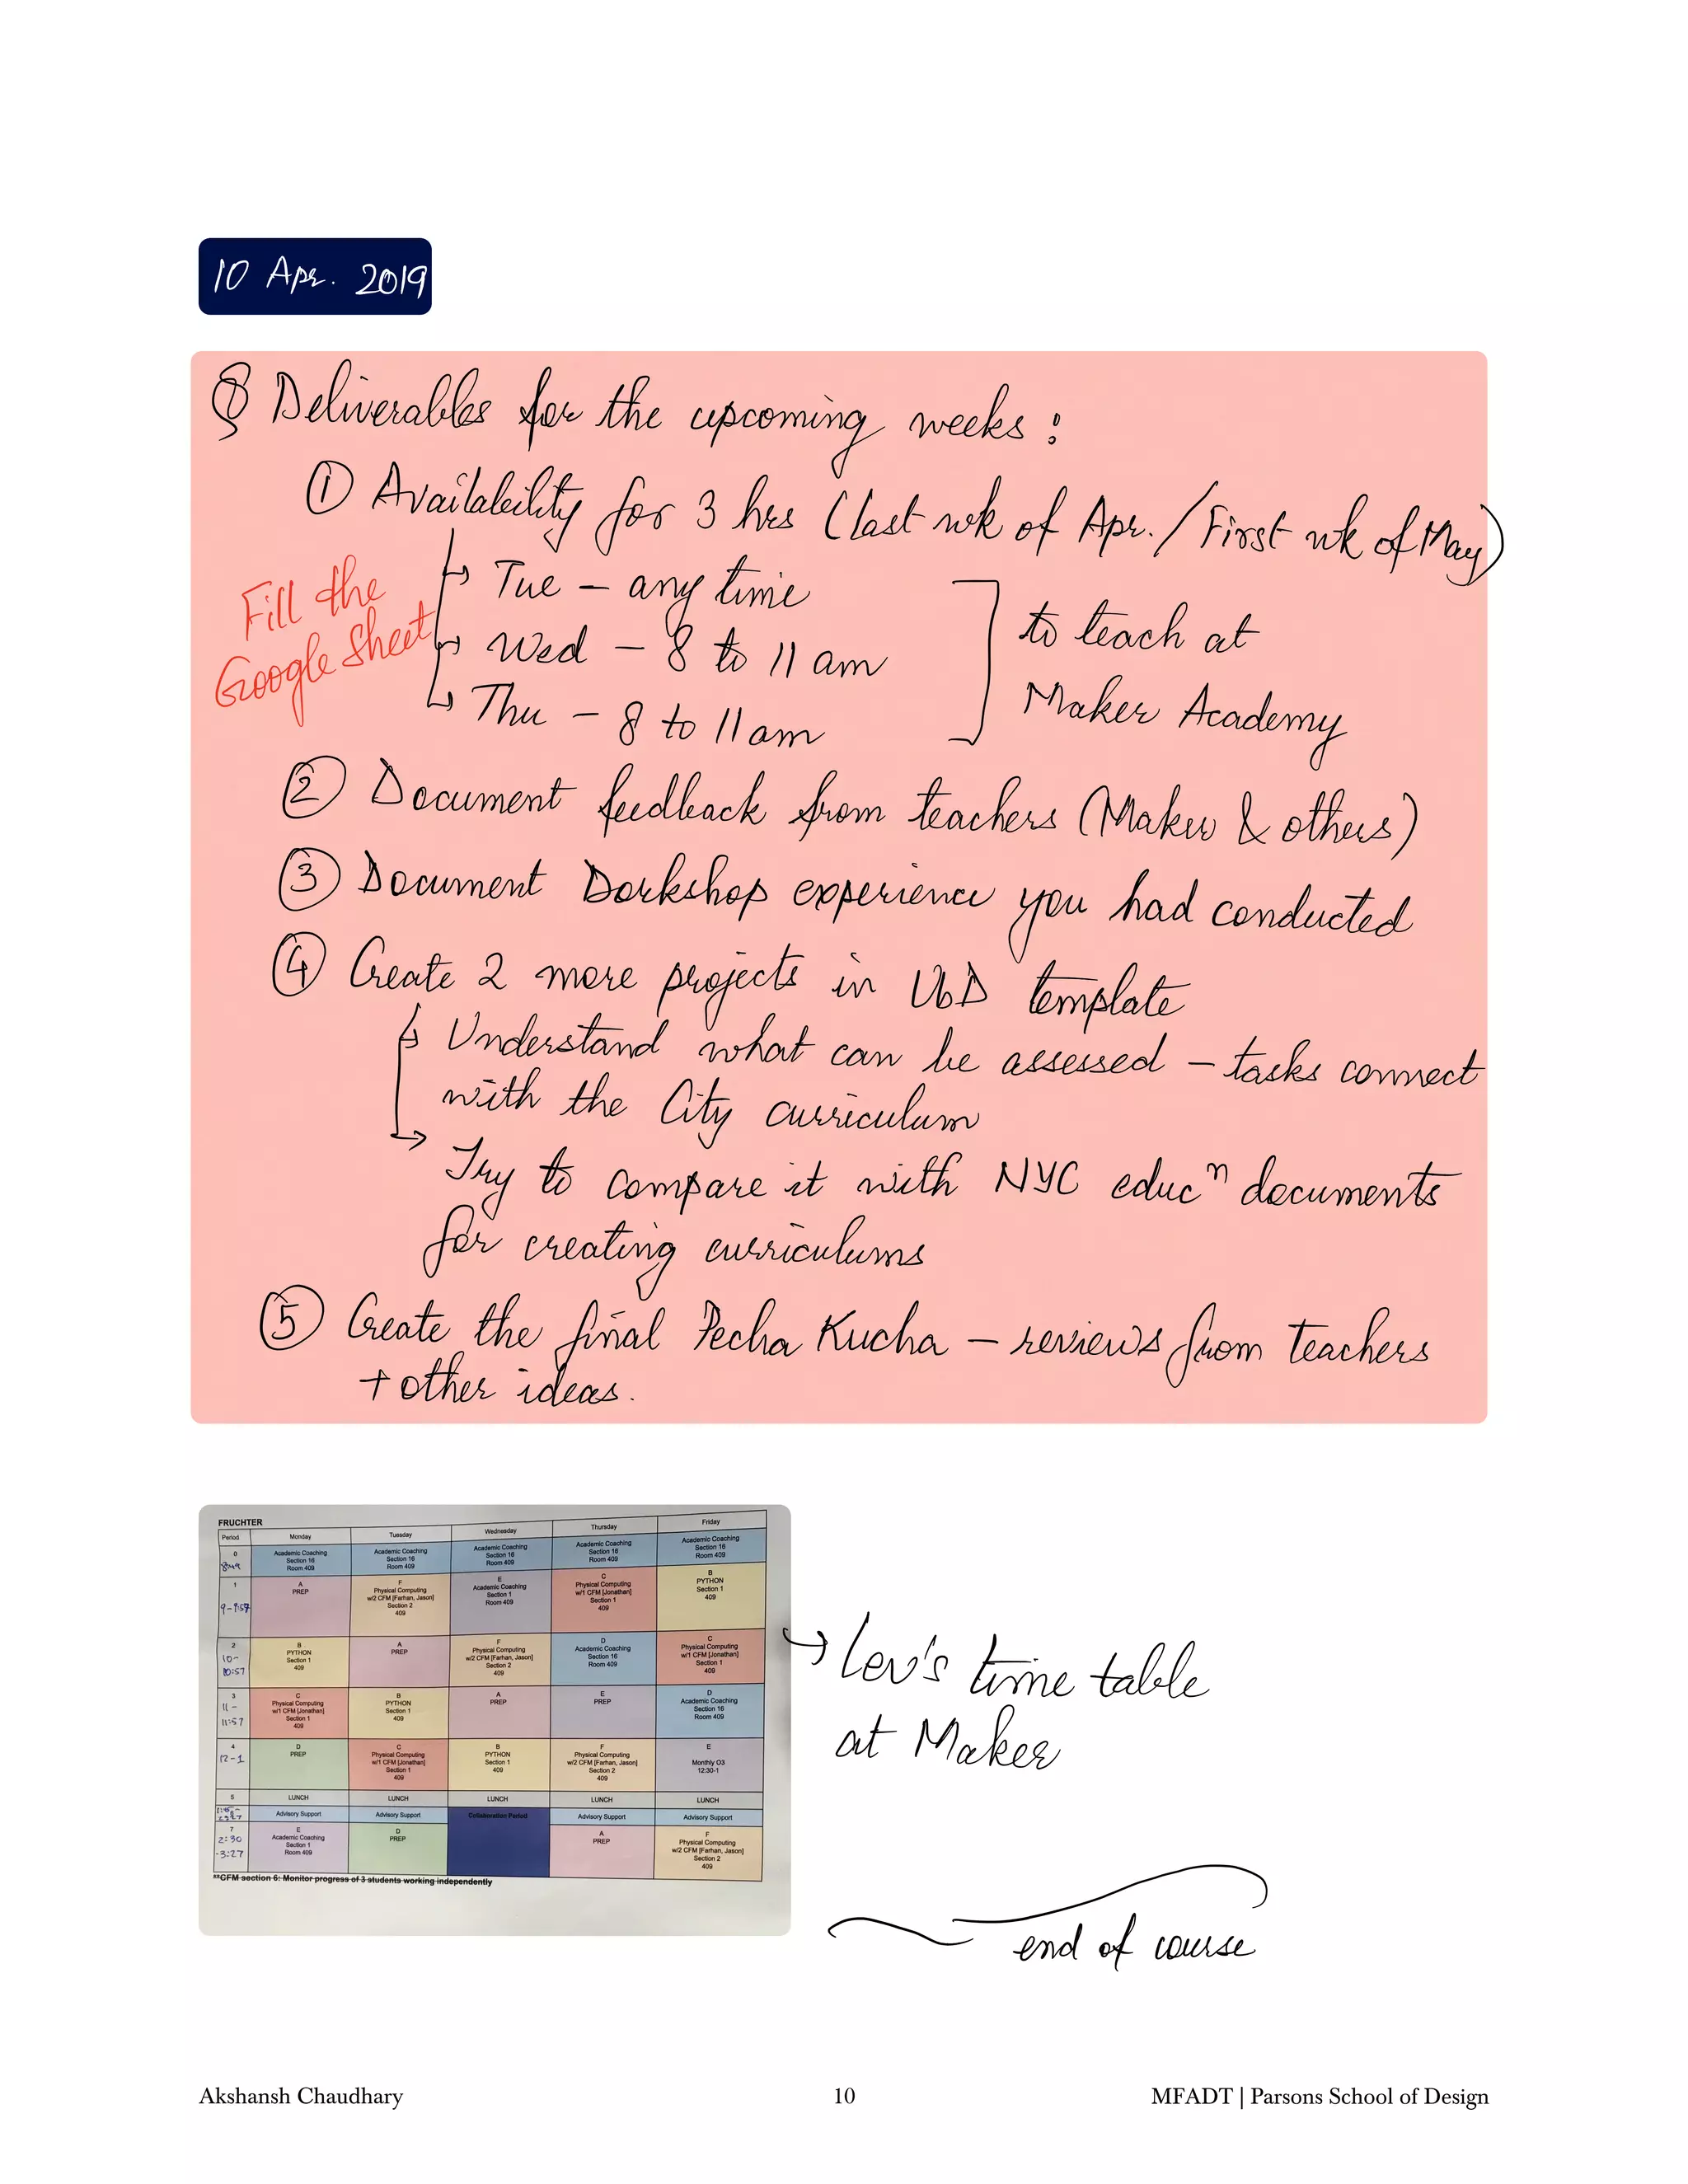 10 Apr. 2019
Deliverables for the upcoming weeks:
① Availability for 3 hrs (last wk of Apr. / First wk of May)
Fill the
Google Sheet
↳ Tue – any time
↳ Wed – 8 to 11 am
↳ Thu – 8 to 11 am
to teach at
Maker Academy
② Document feedback from teachers (Maker & others)
③ Document Dorkshop experience you had conducted
④ Create 2 more projects in UbD template
↳ Understand what can be assessed – tasks connect
with the City curriculum
→ Try to compare it with NYC educⁿ documents
for creating curriculums
⑤ Create the final Pecha Kucha – reviews from teachers
+ other ideas.
FRUCHTER
Period Monday Tuesday Wednesday Thursday Friday
0
Academic Coaching
Section 16
Room 409
Academic Coaching
Section 16
Room 409
Academic Coaching
Section 16
Room 409
Academic Coaching
Section 16
Room 409
Academic Coaching
Section 16
Room 409
1
9-9:57
A
PREP
F
Physical Computing
w/2 CFM [Farhan, Jason]
Section 2
409
E
Academic Coaching
Section 1
Room 409
C
Physical Computing
w/1 CFM [Jonathan]
Section 1
409
B
PYTHON
Section 1
409
2
10-
10:57
B
PYTHON
Section 1
409
A
PREP
F
Physical Computing
w/2 CFM [Farhan, Jason]
Section 2
409
D
Academic Coaching
Section 16
Room 409
C
Physical Computing
w/1 CFM [Jonathan]
Section 1
409
3
11-
11:57
C
Physical Computing
w/1 CFM [Jonathan]
Section 1
409
B
PYTHON
Section 1
409
A
PREP
E
PREP
D
Academic Coaching
Section 16
Room 409
4
12-1
D
PREP
C
Physical Computing
w/1 CFM [Jonathan]
Section 1
409
B
PYTHON
Section 1
409
F
Physical Computing
w/2 CFM [Farhan, Jason]
Section 2
409
E
Monthly O3
12:30-1
5 LUNCH LUNCH LUNCH LUNCH LUNCH
Advisory Support Advisory Support Collaboration Period Advisory Support Advisory Support
7
2:30
-3:27
E
Academic Coaching
Section 1
Room 409
D
PREP
A
PREP
F
Physical Computing
w/2 CFM [Farhan, Jason]
Section 2
409
**CFM section 6: Monitor progress of 3 students working independently
→ Lev's time table
at Maker
end of course
Akshansh Chaudhary 10 MFADT | Parsons School of Design